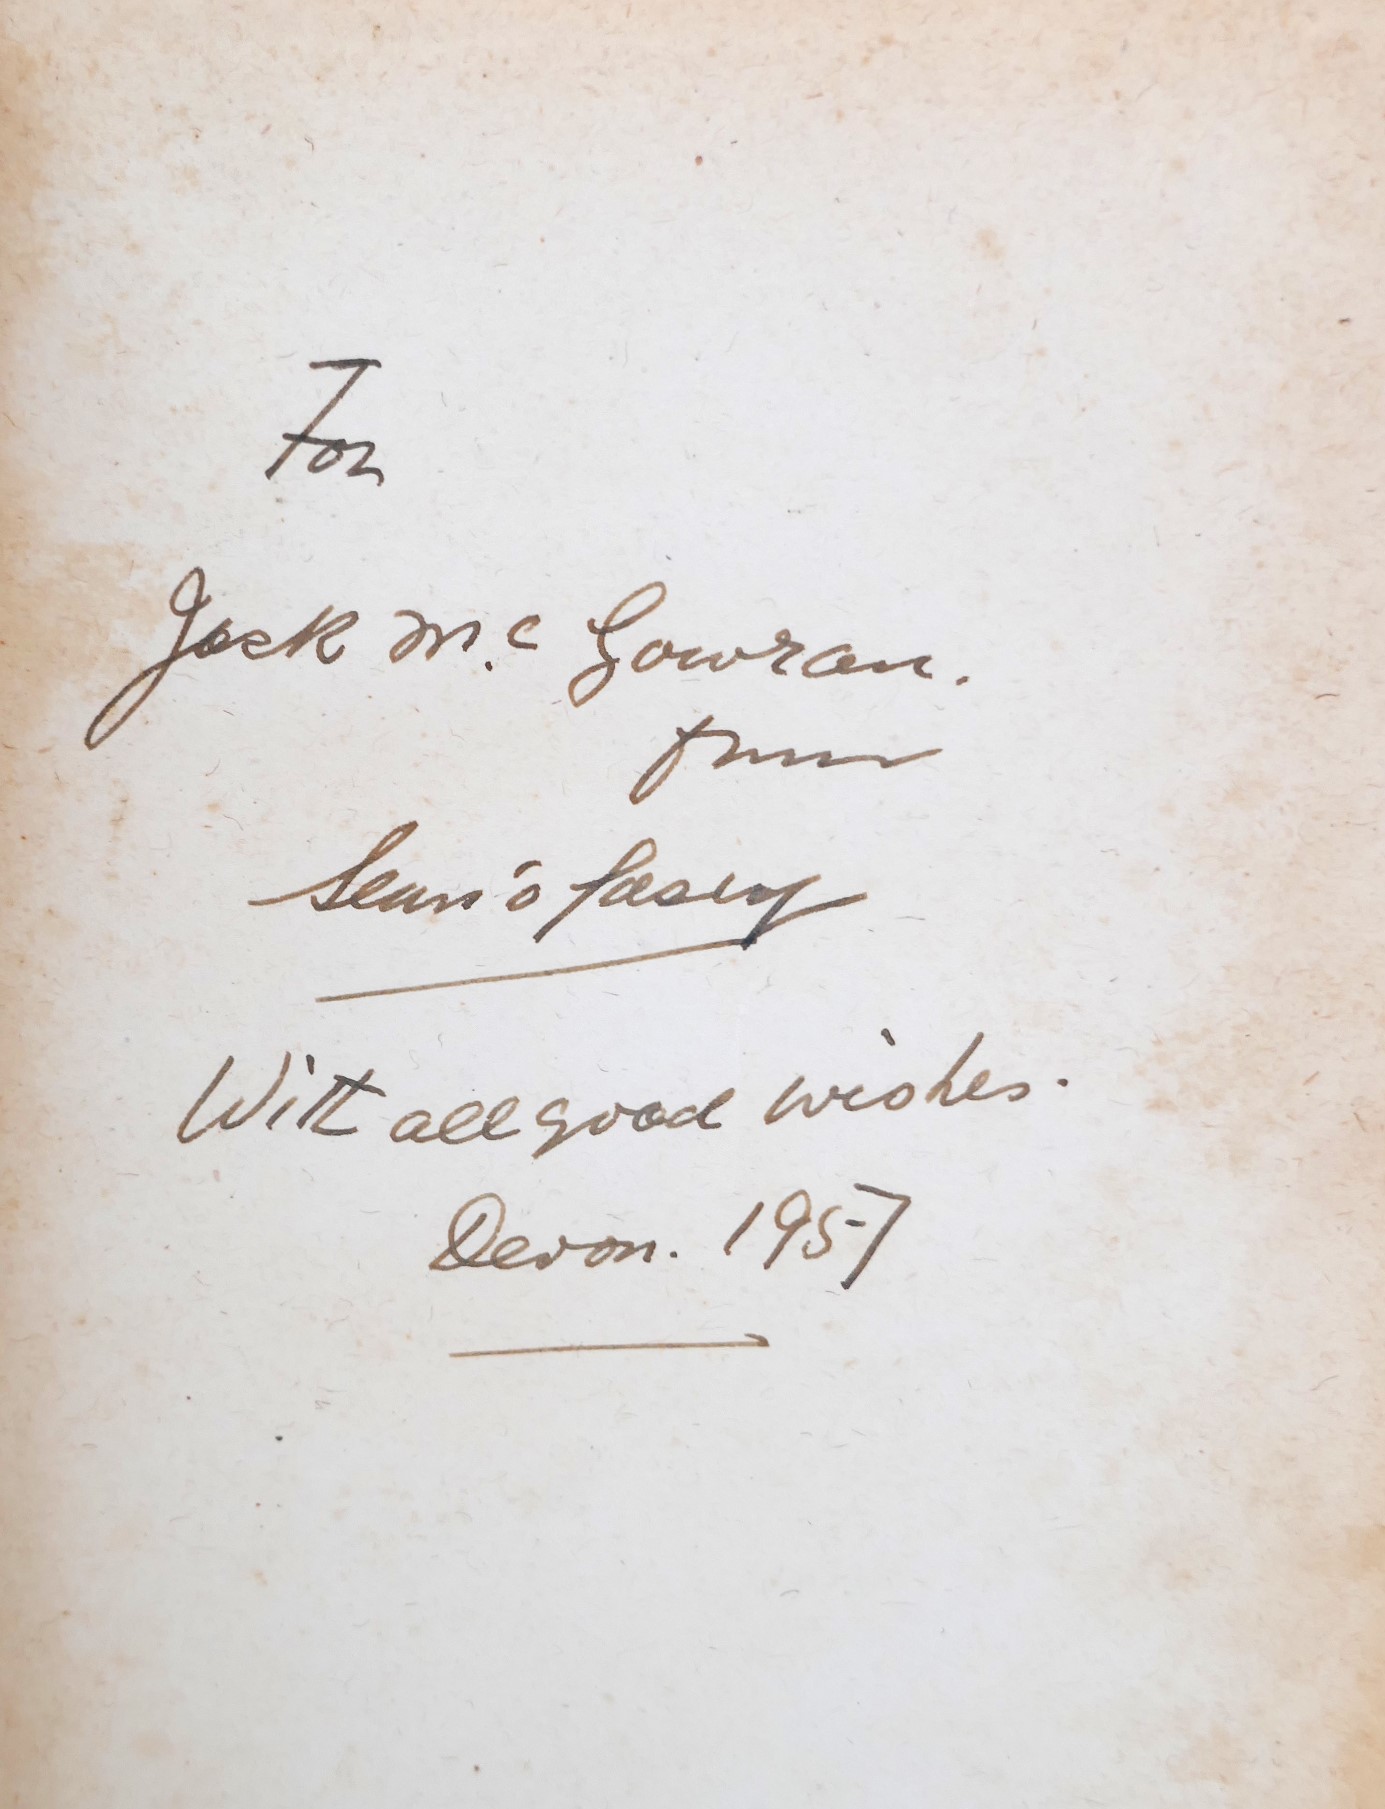 For
Jack Mc Gowran.
from
Sean O'Casey
With all good wishes.
Devon. 1957